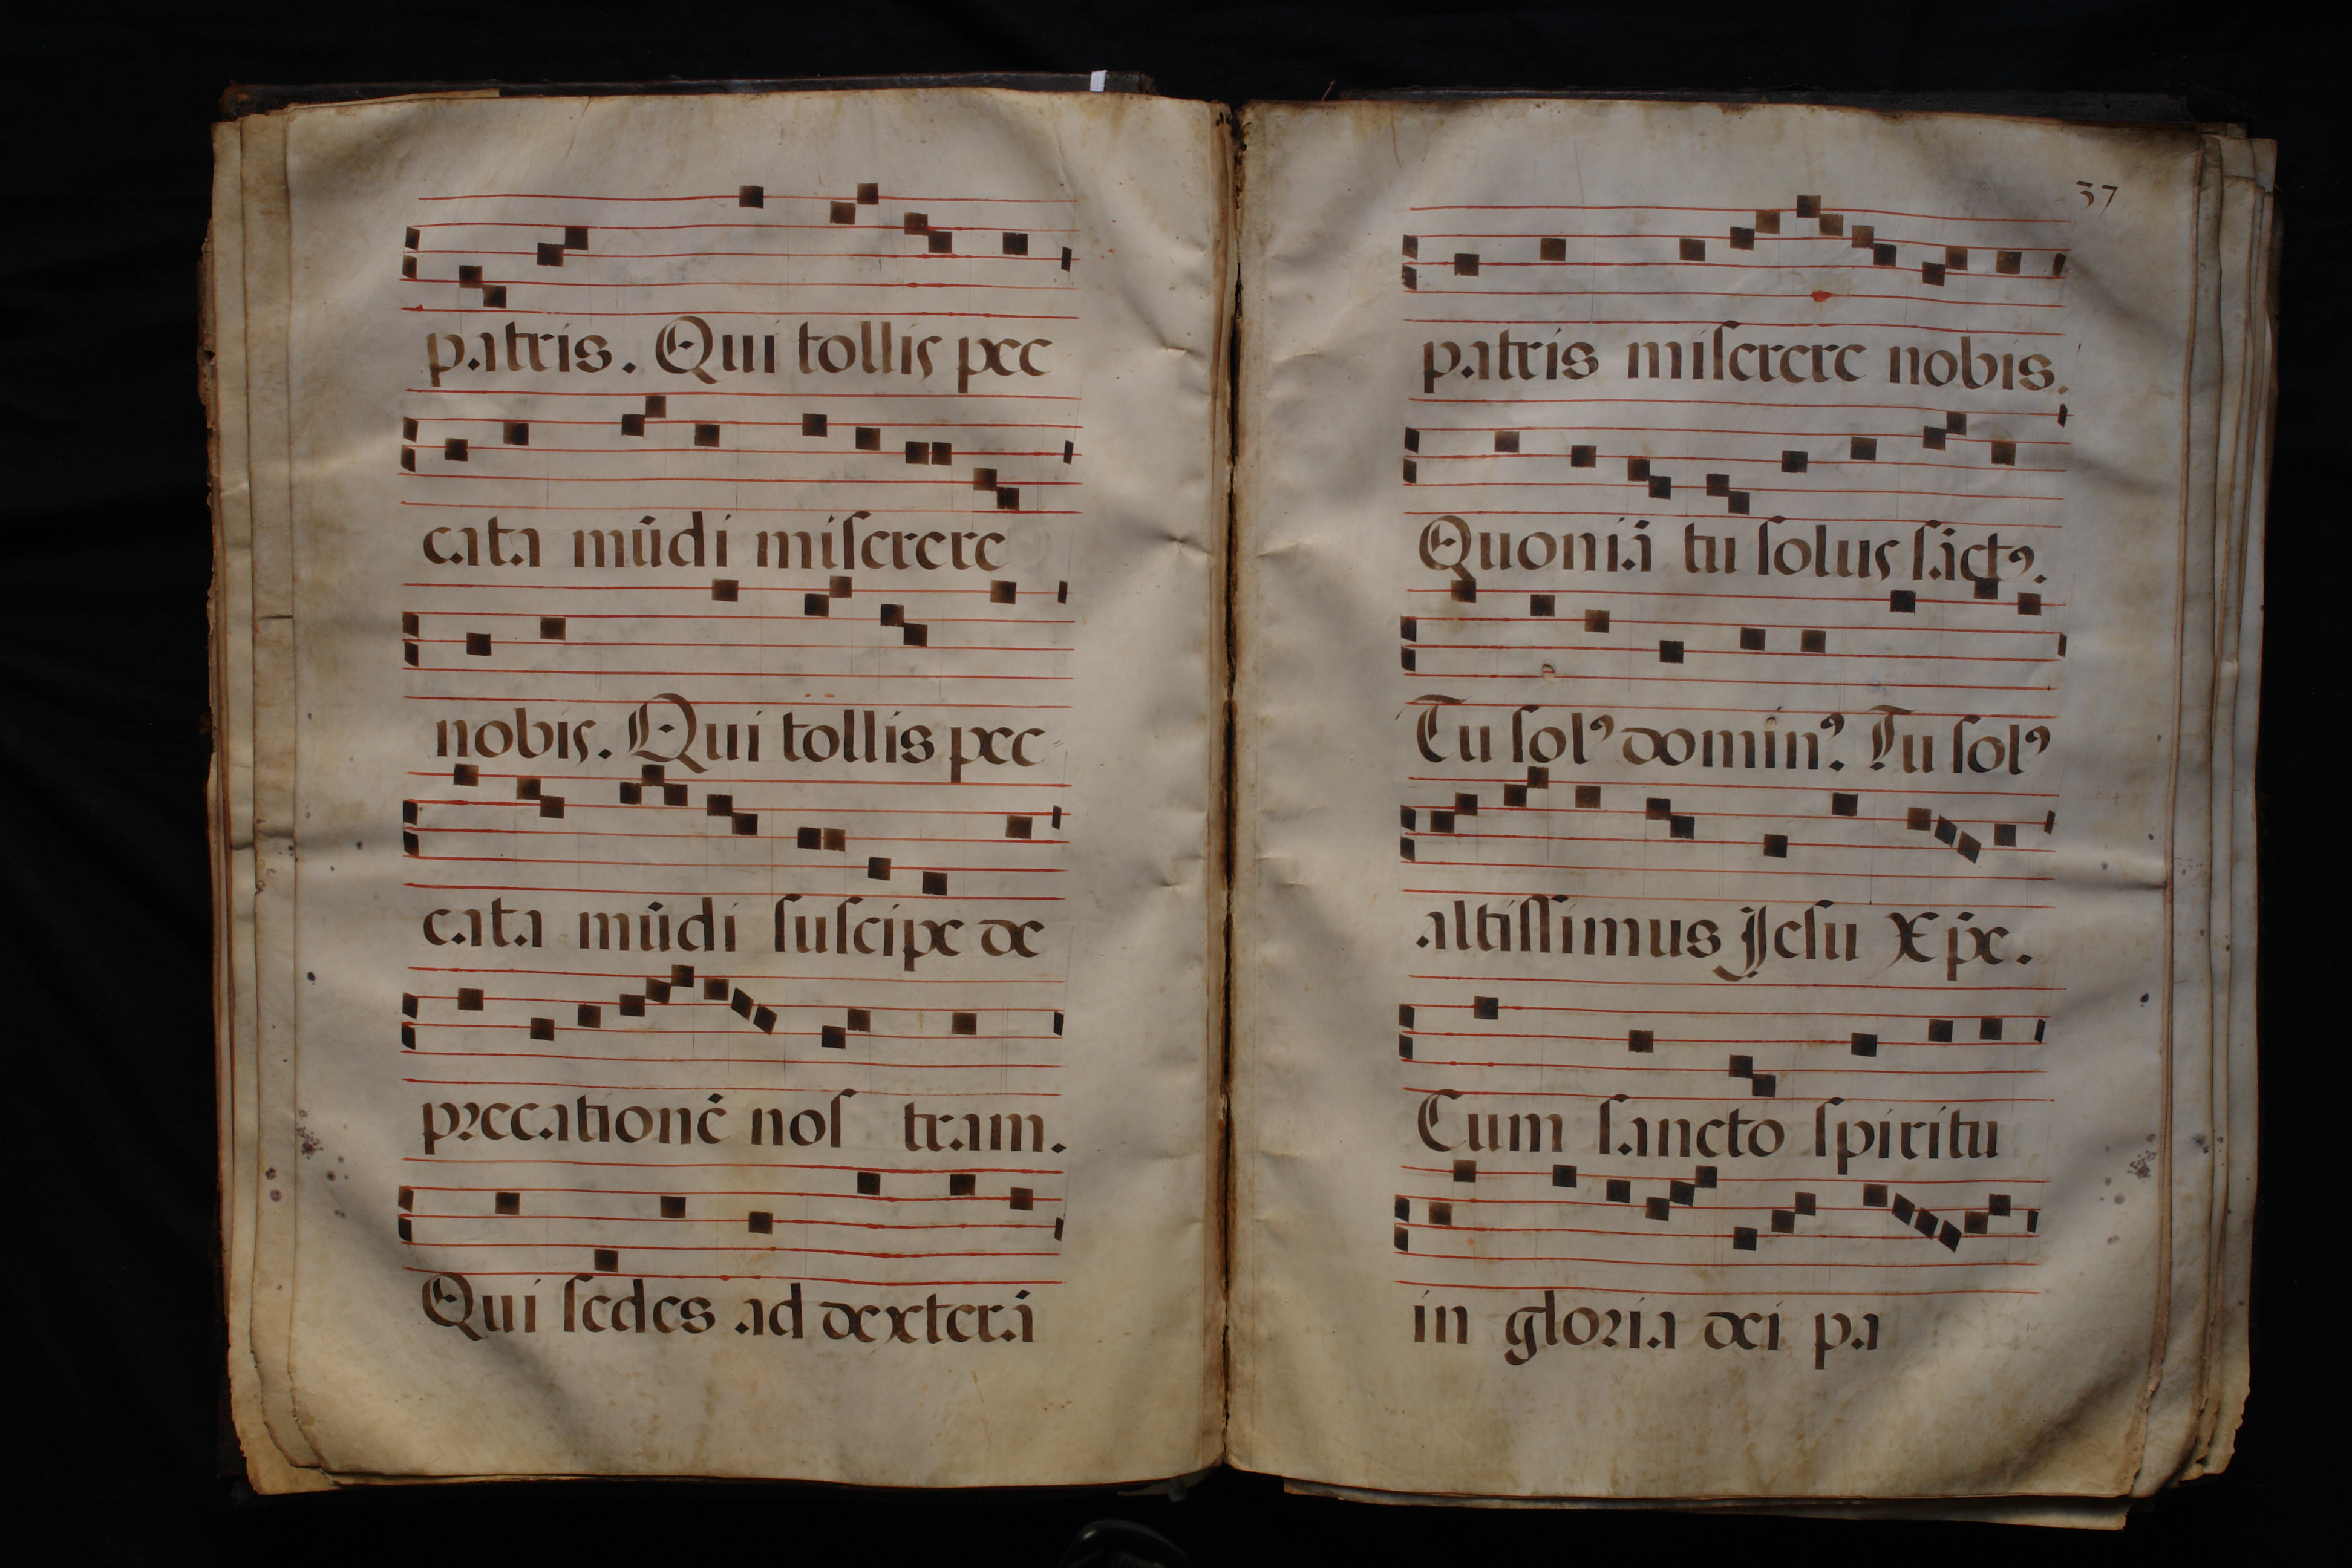 patris. Qui tollis pec
cata mūdi miserere
nobis. Qui tollis pec
cata mūdi suscipe de
precationē nos tram.
Qui sedes ad dexterā
37
patris miserere nobis.
Quoniā tu solus sāctꝰ.
Tu solꝰ dominꝰ. Tu solꝰ
altissimus Jesu Xp̄e.
Cum sancto spiritu
in gloria dei pa